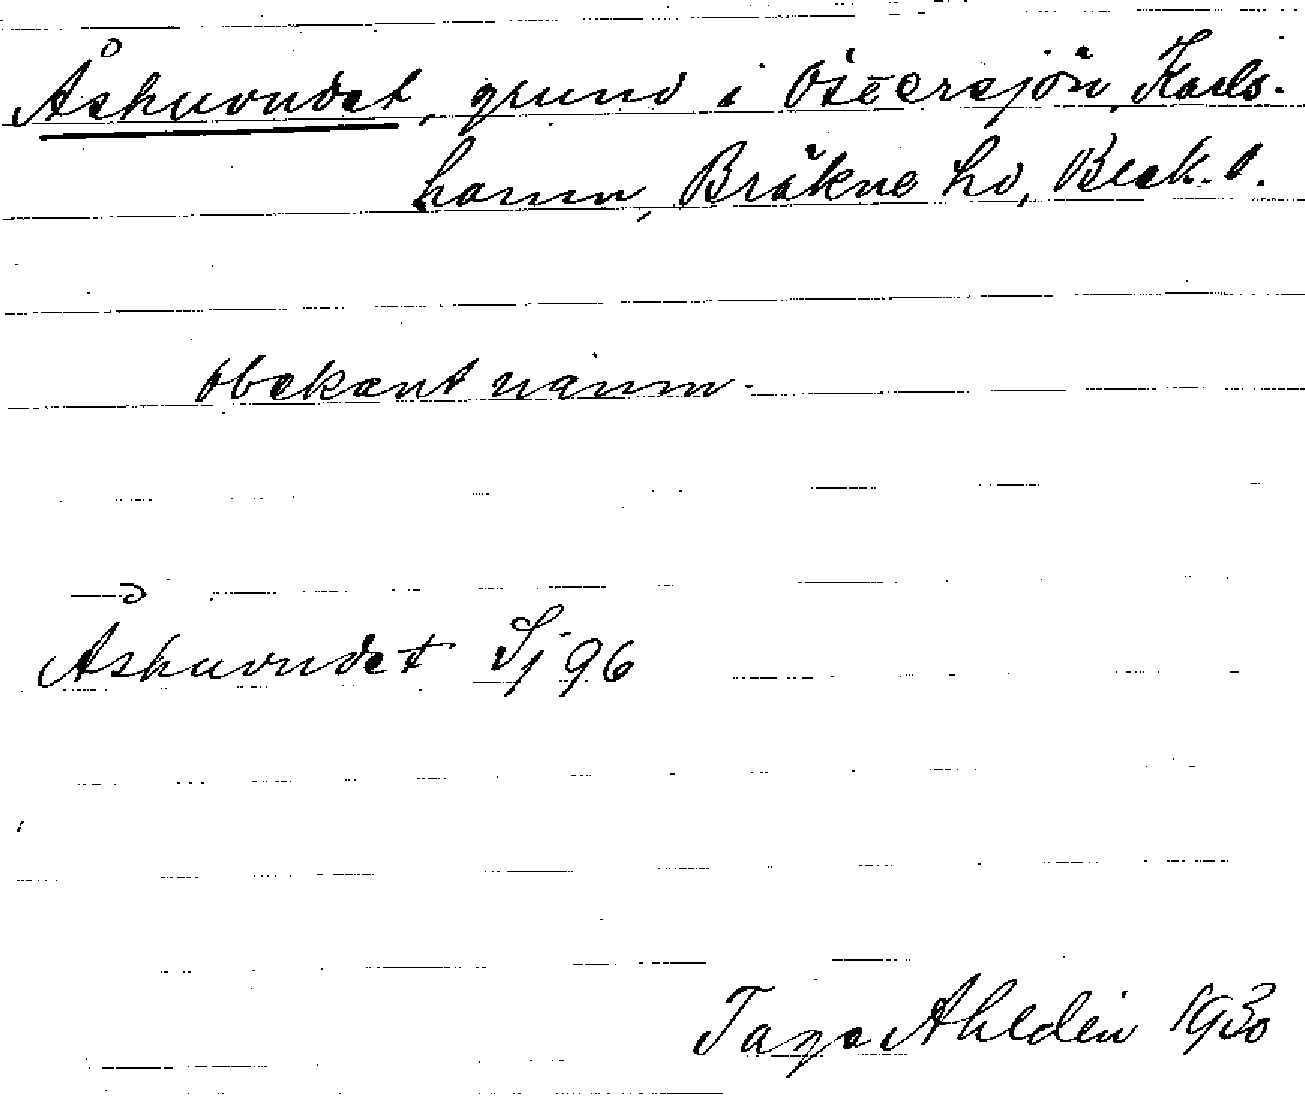 Åshuvudet, grund i Östersjön, Karls-
hamn, Bräkne hd, Blek. l.
Obekant namn.
Åshuvudet Sj 96
Tage Ahldén 1930